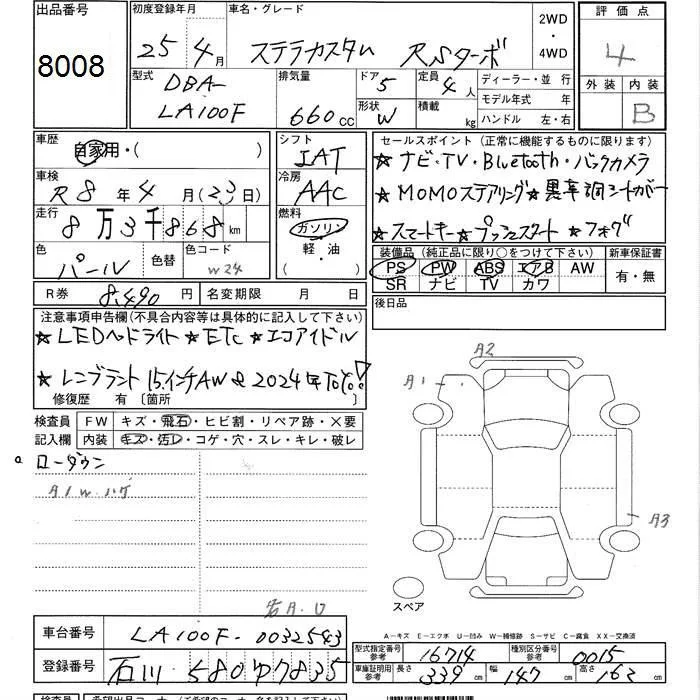 出品番号 初度登録年月 車名・グレード 2WD・4WD 評価点
8008 25年4月 ステラカスタム RSターボ 4
型式 排気量 ドア 定員 ディーラー・並行 外装 内装
DBA-LA100F 660cc 5 4人 モデル年式 年 B
形状 W 積載 kg ハンドル 左・右
車歴 自家用・( ) シフト IAT セールスポイント(正常に機能するものに限ります)
★ナビ・TV・Bluetooth・バックカメラ
車検 R8年4月(23日) 冷房 AAC ★MOMOステアリング★黒革調シートカバー
走行 8万3千868km 燃料 ガソリン 軽・油 ★スマートキー★プッシュスタート★フォグ
色 パール 色替 色コード W24 装備品(純正品に限り○をつけて下さい) 新車保証書
PS PW ABS エアB AW 有・無
SR ナビ TV カワ
R券 8,490円 名変期限 月 日 後日品
注意事項申告欄(不具合内容等は具体的に記入して下さい)
★LEDヘッドライト★ETC★エコアイドル
★レンブラント15インチAW 2024年
修復歴 有〔箇所 〕
検査員 FW キズ・飛石・ヒビ割・リペア跡・×要
記入欄 内装 キズ・汚レ・コゲ・穴・スレ・キレ・破レ
ローダウン
A1 W ハゲ
右A.U
A2
A1
A3
スペア
A-キズ E-エクボ U-凹み W-補修跡 S-サビ C-腐食 XX-交換済
車台番号 LA100F-0032543 型式指定番号 参考 16714 種別区分番号 参考 0015
登録番号 石川 580ゆ7835 車庫証明用 参考 長さ 339cm 幅 147cm 高さ 162cm